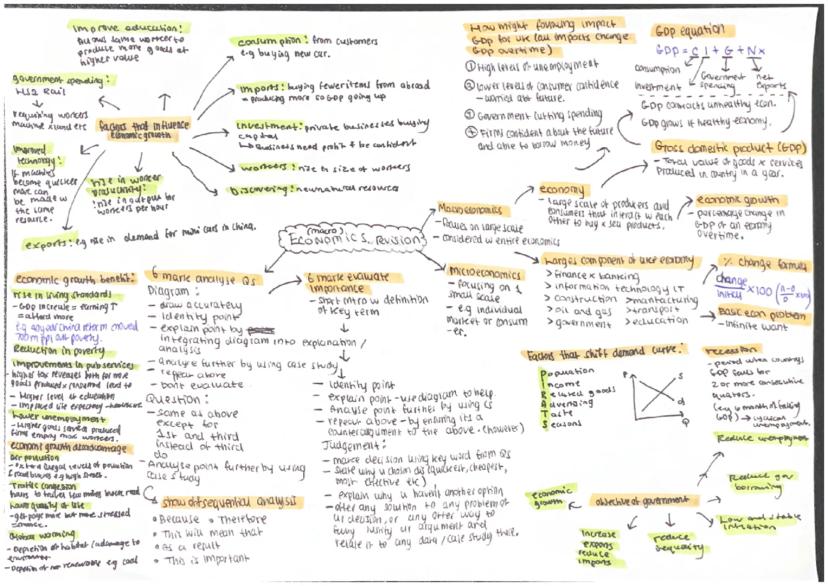 improve education:
allows same worker to
produce more goods at
higher value
government spending:
HS2 Rail
requiring workers
factors that influence
economic growth
improved
technology:
if machines
become quicker
more can
be made w
the same
resource.
rise in worker
productivity:
rise in output per
workers per hour
exports: eg rise in demand for mini cars in china.
consumption: from customers
e.g buying new car.
imports: buying fewer items from abroad
- producing more so GDP going up
investment: private businesses buying
capital
business need profit & be confident
workers: rise in size of workers
Discovering: new natural resources
(macro)
Economics revision
How might following impact
GDP for UK (all imports change
GDP overtime)
① High levels of unemployment
② lower levels of consumer confidence
- worried abt future.
③ Government cutting spending
④ Firms confident about the future
and able to borrow money
GDP equation
GDP = C I + G + Nx
consumption
investment
Government
spending
net
exports
GDP contracts unhealthy econ.
GDP grows if healthy economy.
Gross domestic product (GDP)
- Total value of goods & services
produced in country in a year.
Macroeconomics
- focuses on large scale
- considered w entire economics
economy
- large scale of producers and
consumers that interact w each
other to buy & sell products.
economic growth
- percentage change in
GDP of an economy
overtime.
Microeconomics
- focusing on 1
small scale
- e.g individual
market or consum
-er.
Larges component of uk economy
> finance & banking
> information technology IT
> construction > manufacturing
> oil and gas > transport
> government > education
% change formula
change
initial
x100
Basic econ problem
- infinite want
economic growth benefit:
rise in living standards
- GDP increase = earning ↑
= afford more
Reduction in poverty
improvements in pub services
- Higher level of education
- improved life expectancy - healthcare
lower unemployment
economic growth disadvantage
Air pollution
Traffic congestion
lower quality of life
- get pay more but more stressed
Global warming
- Depletion of non renewable eg coal
6 mark analyse QS
Diagram:
- draw accurately
- identity point
- explain point by
integrating diagram into explanation/
analysis
- analyse further by using case study
- repeat above
- dont evaluate
Question:
- same as above
except for
1st and third
instead of third
do
- Analyse point further by using
case study
show of sequential analysis
• Because • Therefore
• This will mean that
• As a result
• This is important
6 mark evaluate
importance
- short intro w definition
of key term
- identity point
- explain point - use diagram to help.
- Analyse point further by using CS
- repeat above - by ensuring its a
counterargument to the above. (however)
Judgement:
- make decision using key word from QS
- state why u chose it (quickest, cheapest,
most effective etc)
- explain why u haven't another option
- offer any solution to any problem of
ur decision, or any other way to
fully justify ur argument and
relate it to any data / case study there.
Factors that shift demand curve:
Population
Income
Related goods
Advertising
Taste
Seasons
P
S
d
Q
recession
- period where countrys
GDP falls for
2 or more consecutive
quarters.
(eg 6 month of falling
GDP)
unemployment
objective of government
Reduce unemployment
Reduce gov
borrowing
Low and stable
inflation
reduce
inequality
increase
exports
reduce
imports
economic
growth